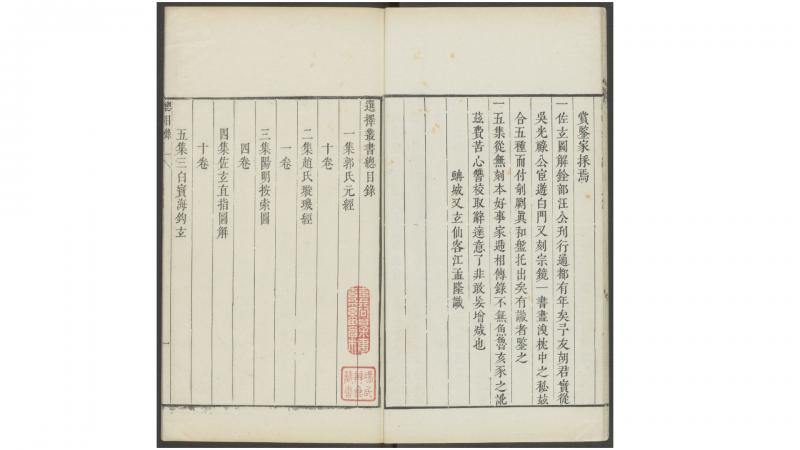 賞鑒家採焉
一佐玄圖解銓部汪公刋行過都有年矣予友胡君實從
吳光祿公宦遊白門又刻宗鏡一書盡洩枕中之秘玆
合五種而付剞劂眞和盤托出矣有識者鑒之
一五集從無刻本好事家遞相傳錄不無魚魯亥豕之訛
茲費苦心讐校取辭達意了非敢妄增減也
又玄仙客江孟隆識
選擇叢書總目錄
一集郭氏元經
十卷
二集趙氏璇璣經
一卷
三集陽明按索圖
四卷
四集佐玄直指圖解
十卷
五集三白寶海鈎玄
總目錄
一